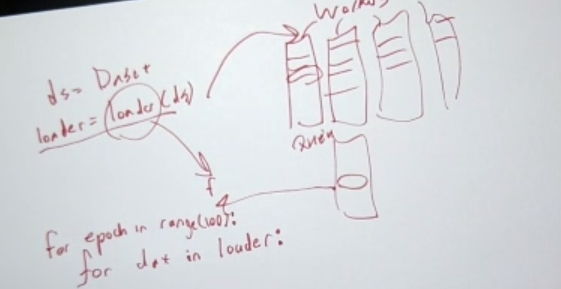 Workers
ds = Daset
loader = loader(ds)
Queu
f
for epoch in range(100):
for dat in loader: